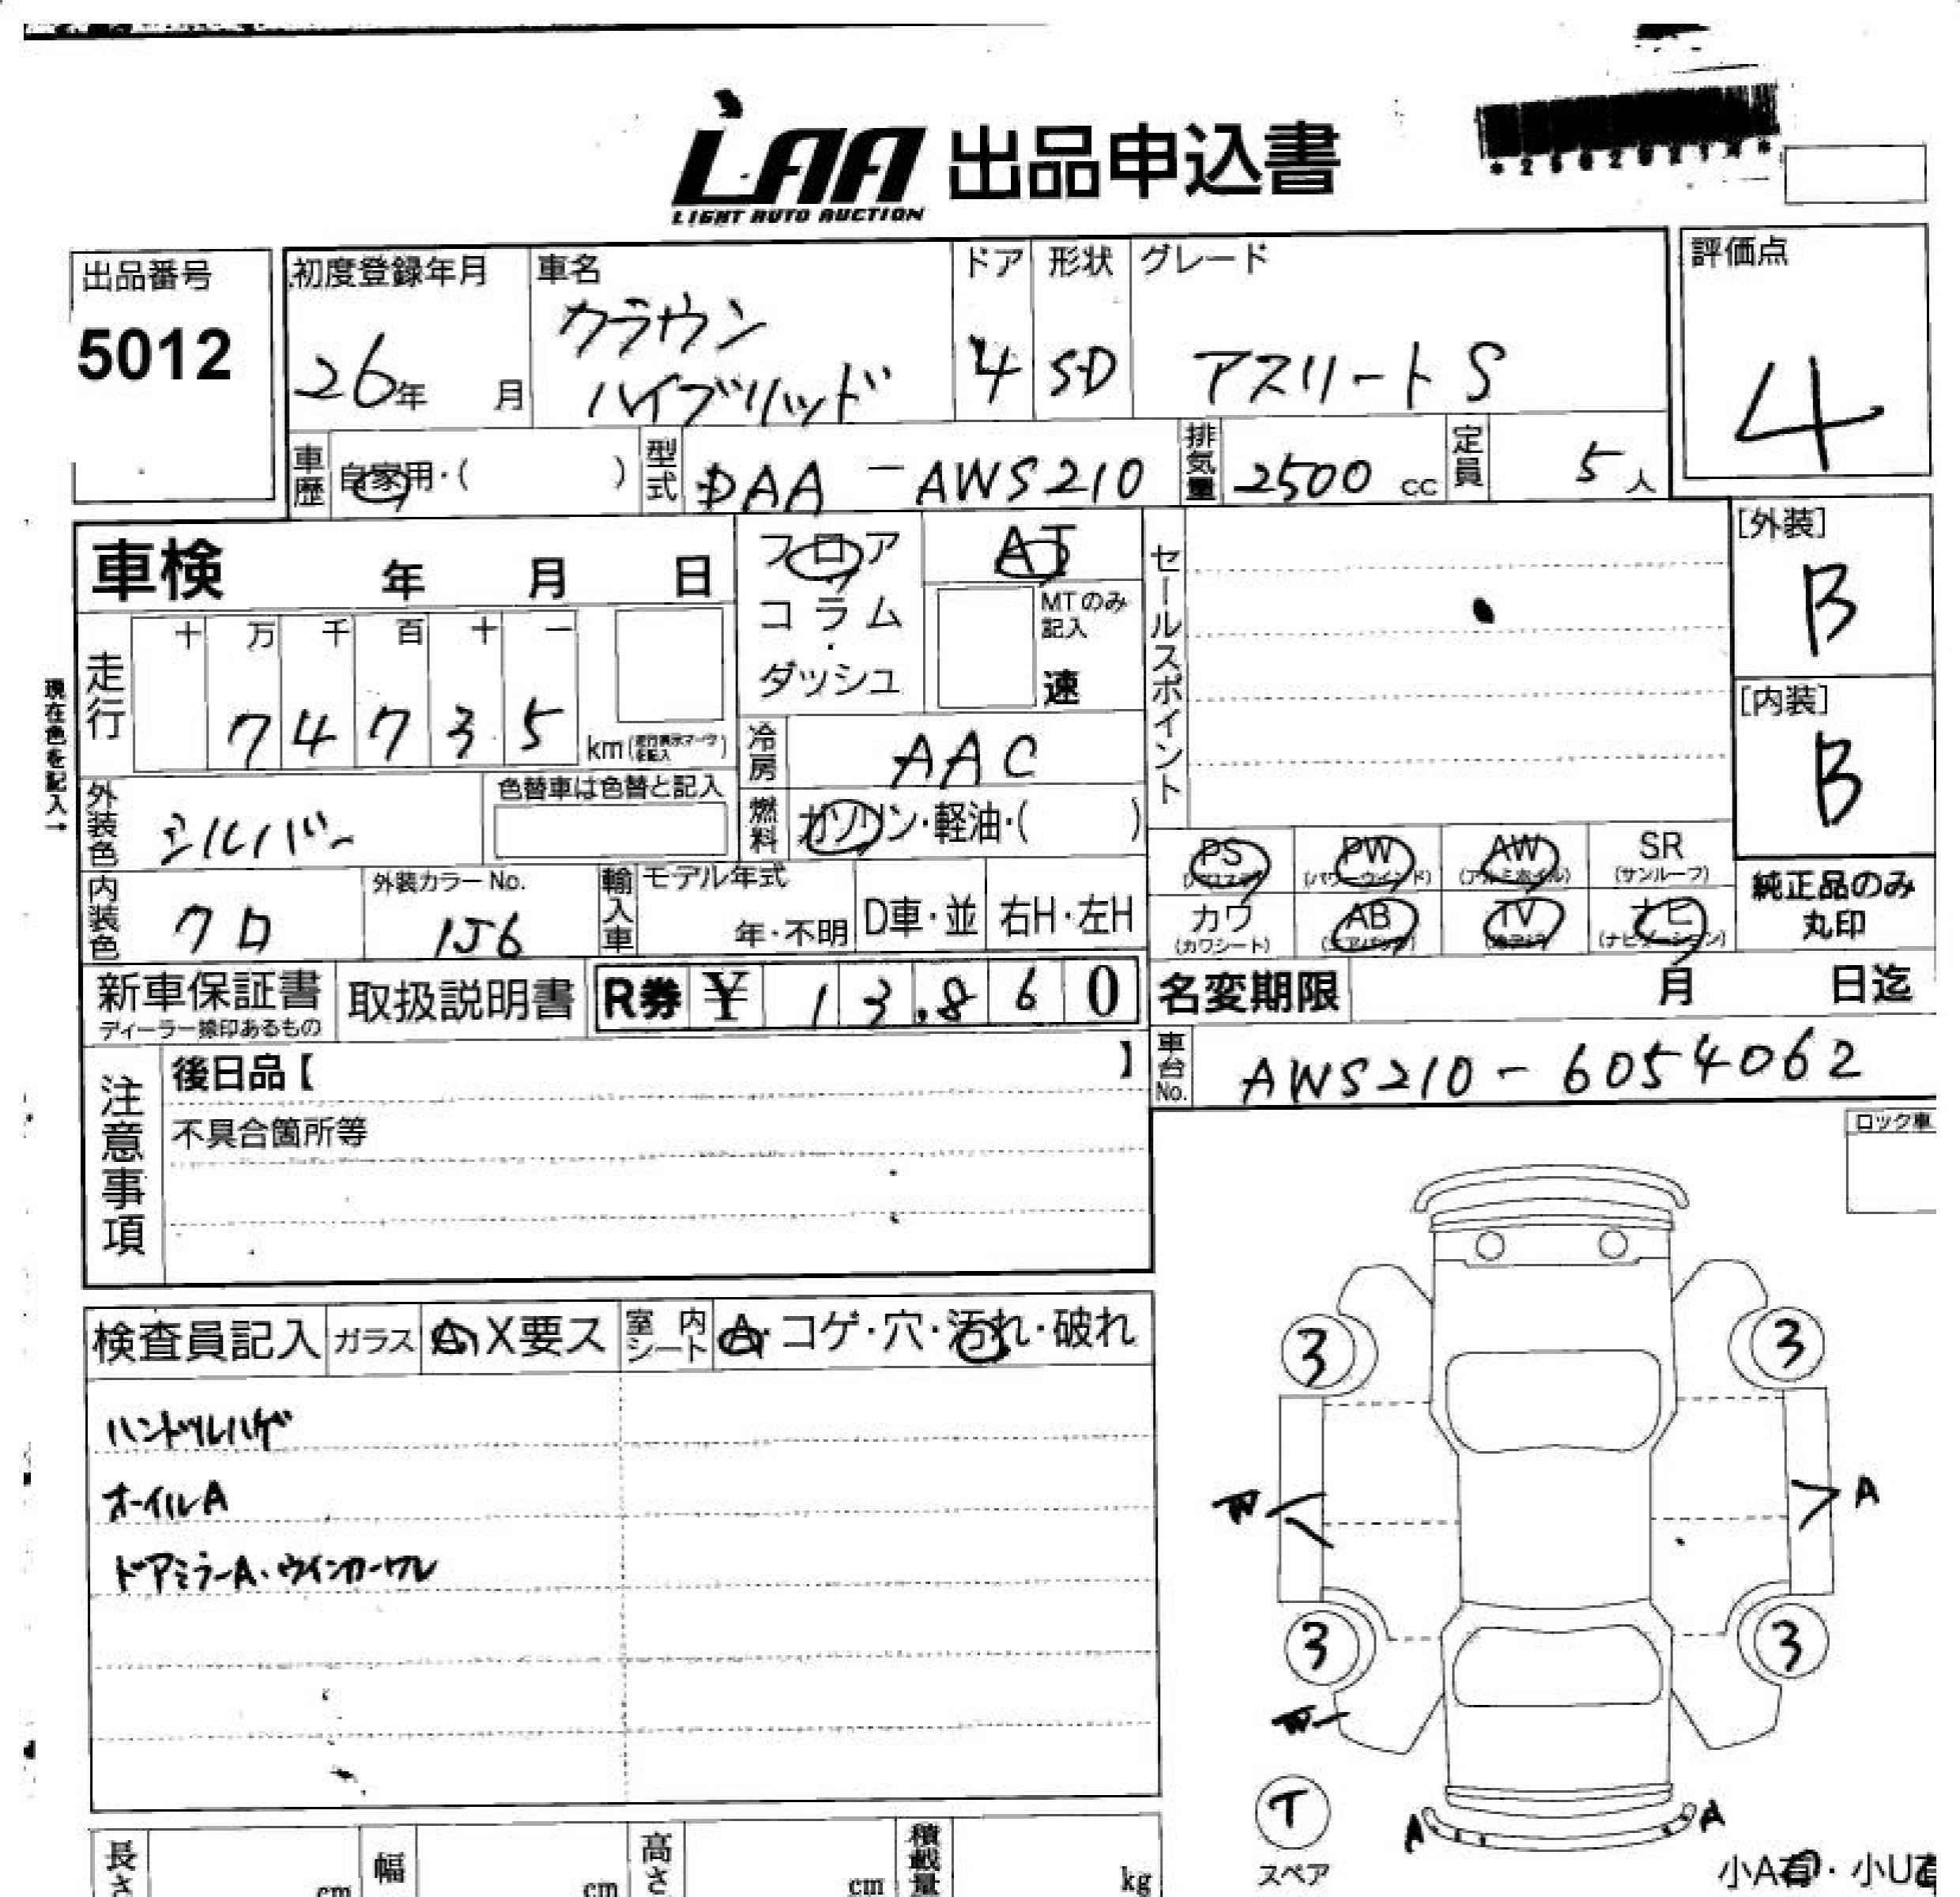 LAA 出品申込書
LIGHT AUTO AUCTION
*25020212*
出品番号
5012
初度登録年月
26年 月
車名
クラウン
ハイブリッド
ドア
4
形状
SD
グレード
アスリートS
評価点
4
車歴
自家用・( )
型式
DAA-AWS210
排気量
2500 cc
定員
5人
[外装]
B
[内装]
B
車検 年 月 日
フロア
コラム
ダッシュ
AT
MTのみ記入
速
セールスポイント
現在色を記入→
走行
十 万 千 百 十 一
7 4 7 3 5 km
冷房
AAC
外装色
シルバー
色替車は色替と記入
燃料
ガソリン・軽油・( )
内装色
クロ
外装カラーNo.
1J6
輸入車
モデル年式
年・不明
D車・並
右H・左H
PS
PW
(パワーウインド)
AW
(アルミホイル)
SR
(サンルーフ)
カワ
(カワシート)
AB
(エアバック)
TV
ナビ
(ナビゲーション)
純正品のみ
丸印
新車保証書
ディーラー捺印あるもの
取扱説明書
R券 ¥ 13,860
名変期限 月 日迄
車台No.
AWS210-6054062
注意事項
後日品【 】
不具合箇所等
ロック車
検査員記入
ガラス
A X要ス
室内シート
A・コゲ・穴・汚れ・破れ
ハンドルハゲ
ホイルA
ドアミラーA・ウインカーワレ
3
3
W
A
3
3
W
T
スペア
A
A
小A有・小U有
長さ cm
幅 cm
高さ cm
積載量 kg